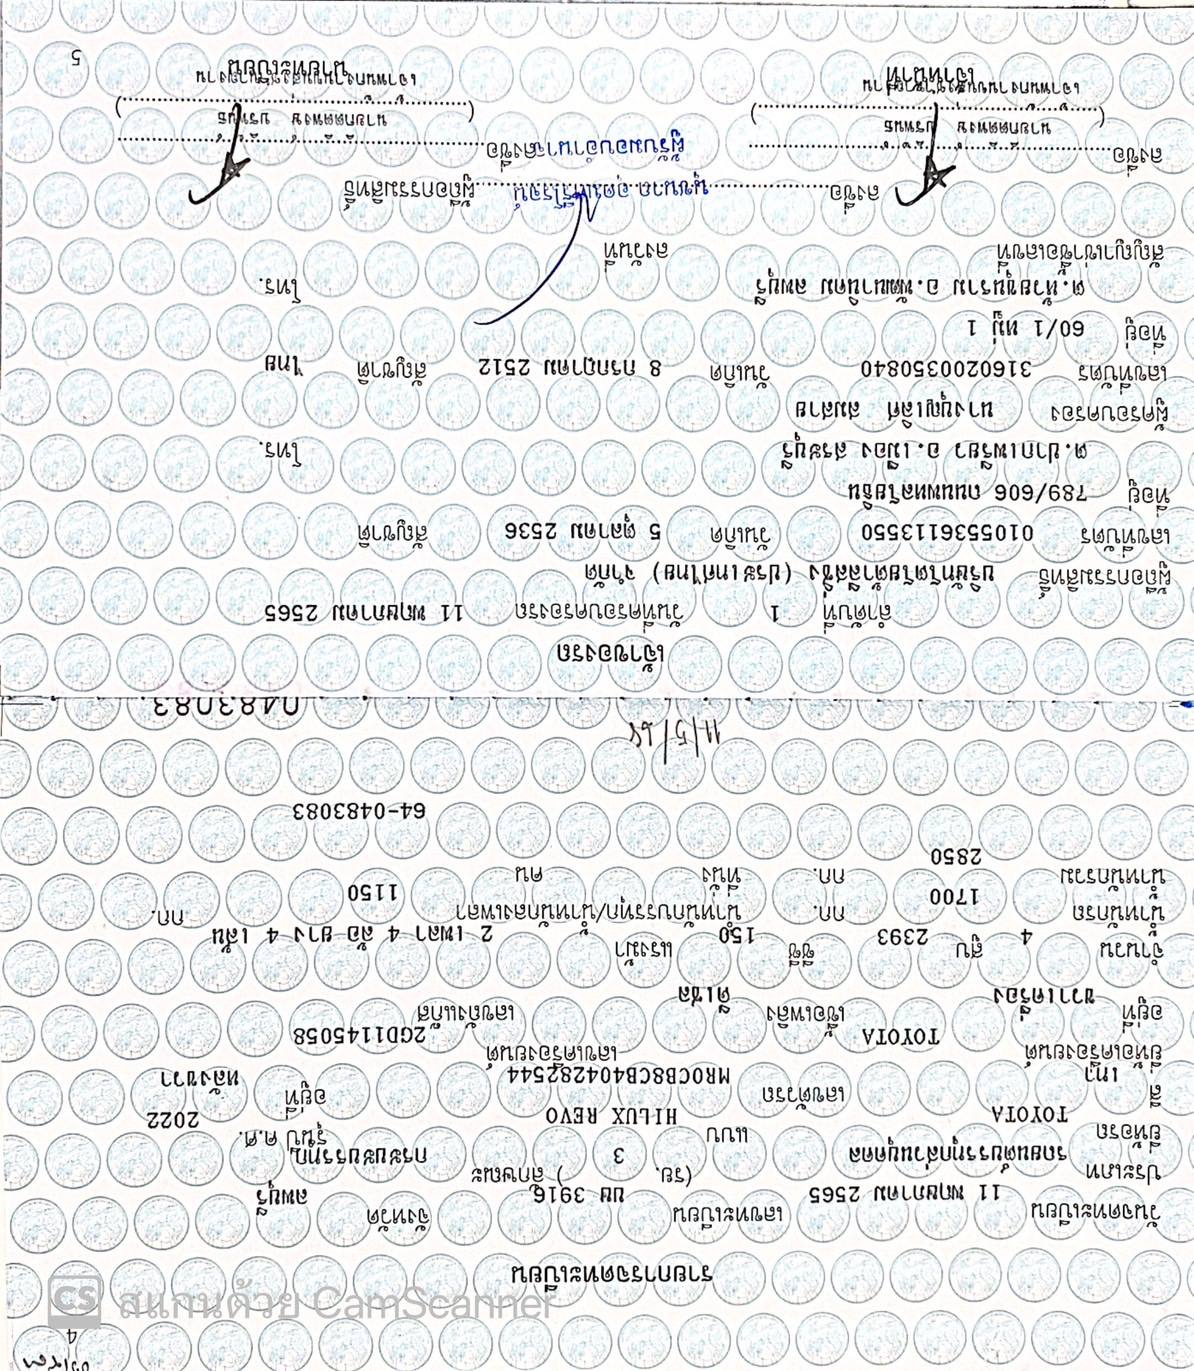 4
รายการจดทะเบียน
วันจดทะเบียน 11 พฤษภาคม 2565 เลขทะเบียน บม 3916 จังหวัด ลพบุรี
ประเภท รถยนต์บรรทุกส่วนบุคคล (รย. 3 ) ลักษณะ กระบะบรรทุก
ยี่ห้อรถ TOYOTA แบบ HILUX REVO รุ่นปี ค.ศ. 2022
สี เทา เลขตัวรถ MR0CB8CB404282544 อยู่ที่ หลังขวา
ยี่ห้อเครื่องยนต์ TOYOTA เลขเครื่องยนต์ 2GD1145058
อยู่ที่ ขวาเครื่อง เชื้อเพลิง ดีเซล เลขถังแก๊ส
จำนวน 4 สูบ 2393 ซีซี 150 แรงม้า 2 เพลา 4 ล้อ ยาง 4 เส้น
น้ำหนักรถ 1700 กก. น้ำหนักบรรทุก/น้ำหนักลงเพลา 1150 กก.
น้ำหนักรวม 2850 กก. ที่นั่ง คน
64-0483083
11/5/65
0483083
เจ้าของรถ
ลำดับที่ 1 วันที่ครอบครองรถ 11 พฤษภาคม 2565
ผู้ถือกรรมสิทธิ์ บริษัทโตโยต้าลีสซิ่ง (ประเทศไทย) จำกัด
เลขที่บัตร 0105536113550 วันเกิด 5 ตุลาคม 2536 สัญชาติ
ที่อยู่ 789/606 ถนนพหลโยธิน
ต.ปากเพรียว อ.เมือง สระบุรี โทร.
ผู้ครอบครอง นางบุญเลิศ สมสาย
เลขที่บัตร 3160200350840 วันเกิด 8 กรกฎาคม 2512 สัญชาติ ไทย
ที่อยู่ 60/1 หมู่ 1
ต.ห้วยขุนราม อ.พัฒนานิคม ลพบุรี โทร.
สัญญาเช่าซื้อเลขที่ ลงวันที่
ลงชื่อ ผู้ถือกรรมสิทธิ์
ผู้รับมอบอำนาจ
ลงชื่อ ลงชื่อ
เจ้าหน้าที่ นายทะเบียน
5